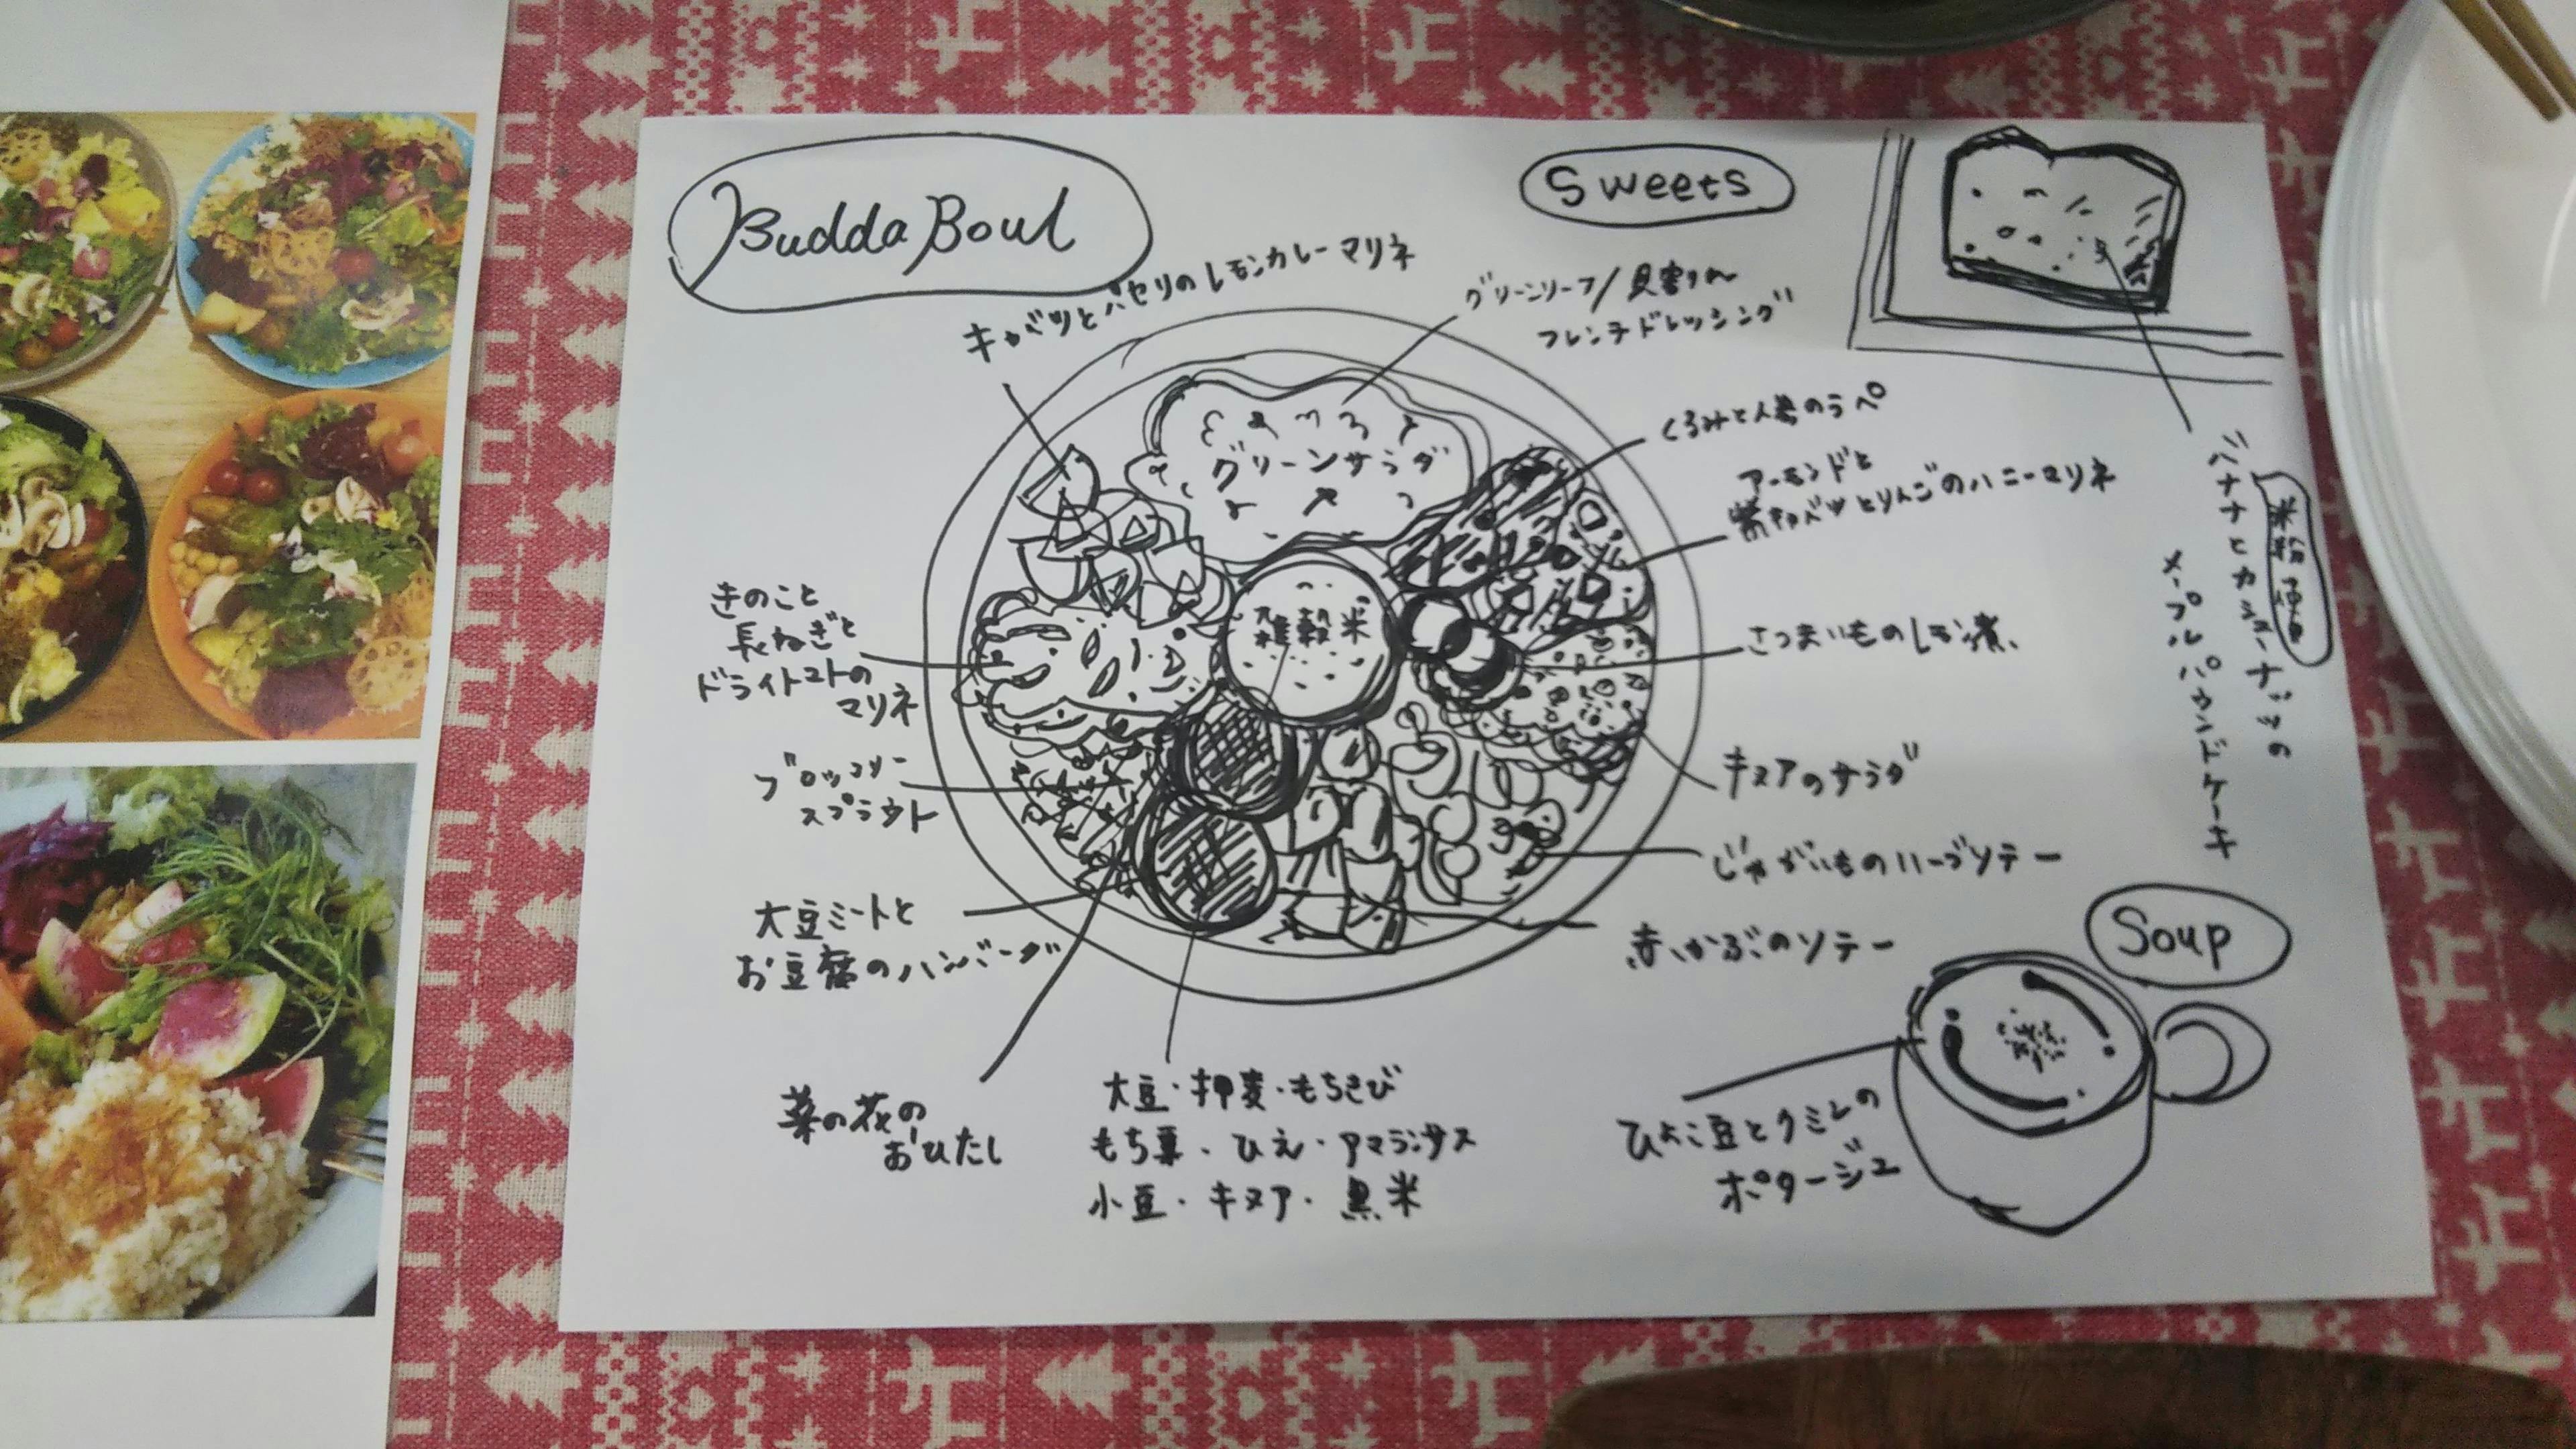 Budda Bowl
キャベツとパセリのレモンカレーマリネ
グリーンリーフ/貝割れ
フレンチドレッシング
グリーンサラダ
くるみと人参のラペ
アーモンドと
紫キャベツとりんごのハニーマリネ
さつまいものレモン煮
キヌアのサラダ
じゃがいものハーブソテー
赤かぶのソテー
雑穀米
きのこと
長ねぎと
ドライトマトの
マリネ
ブロッコリー
スプラウト
大豆ミートと
お豆腐のハンバーグ
菜の花の
おひたし
大豆・押麦・もちきび
もち粟・ひえ・アマランサス
小豆・キヌア・黒米
Sweets
バナナとカシューナッツの
メープルパウンドケーキ
米粉使用
Soup
ひよこ豆とクミンの
ポタージュ